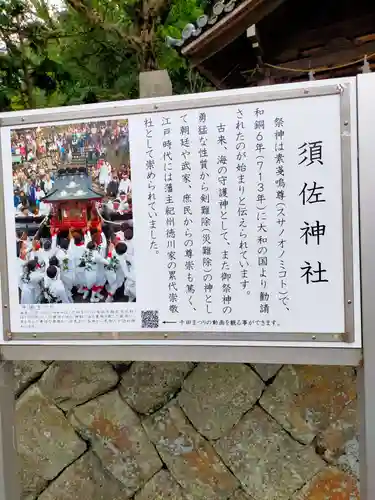 須佐神社
祭神は素戔嗚尊(スサノオノミコト)で、
和銅6年(713年)に大和の国より勧請
されたのが始まりと伝えられています。
古来、海の守護神として、また御祭神の
勇猛な性質から剣難除(災難除)の神とし
て朝廷や武家、庶民からの尊崇も篤く、
江戸時代には藩主紀州徳川家の累代崇敬
社として崇められていました。
千田まつりの動画を観る事ができます。